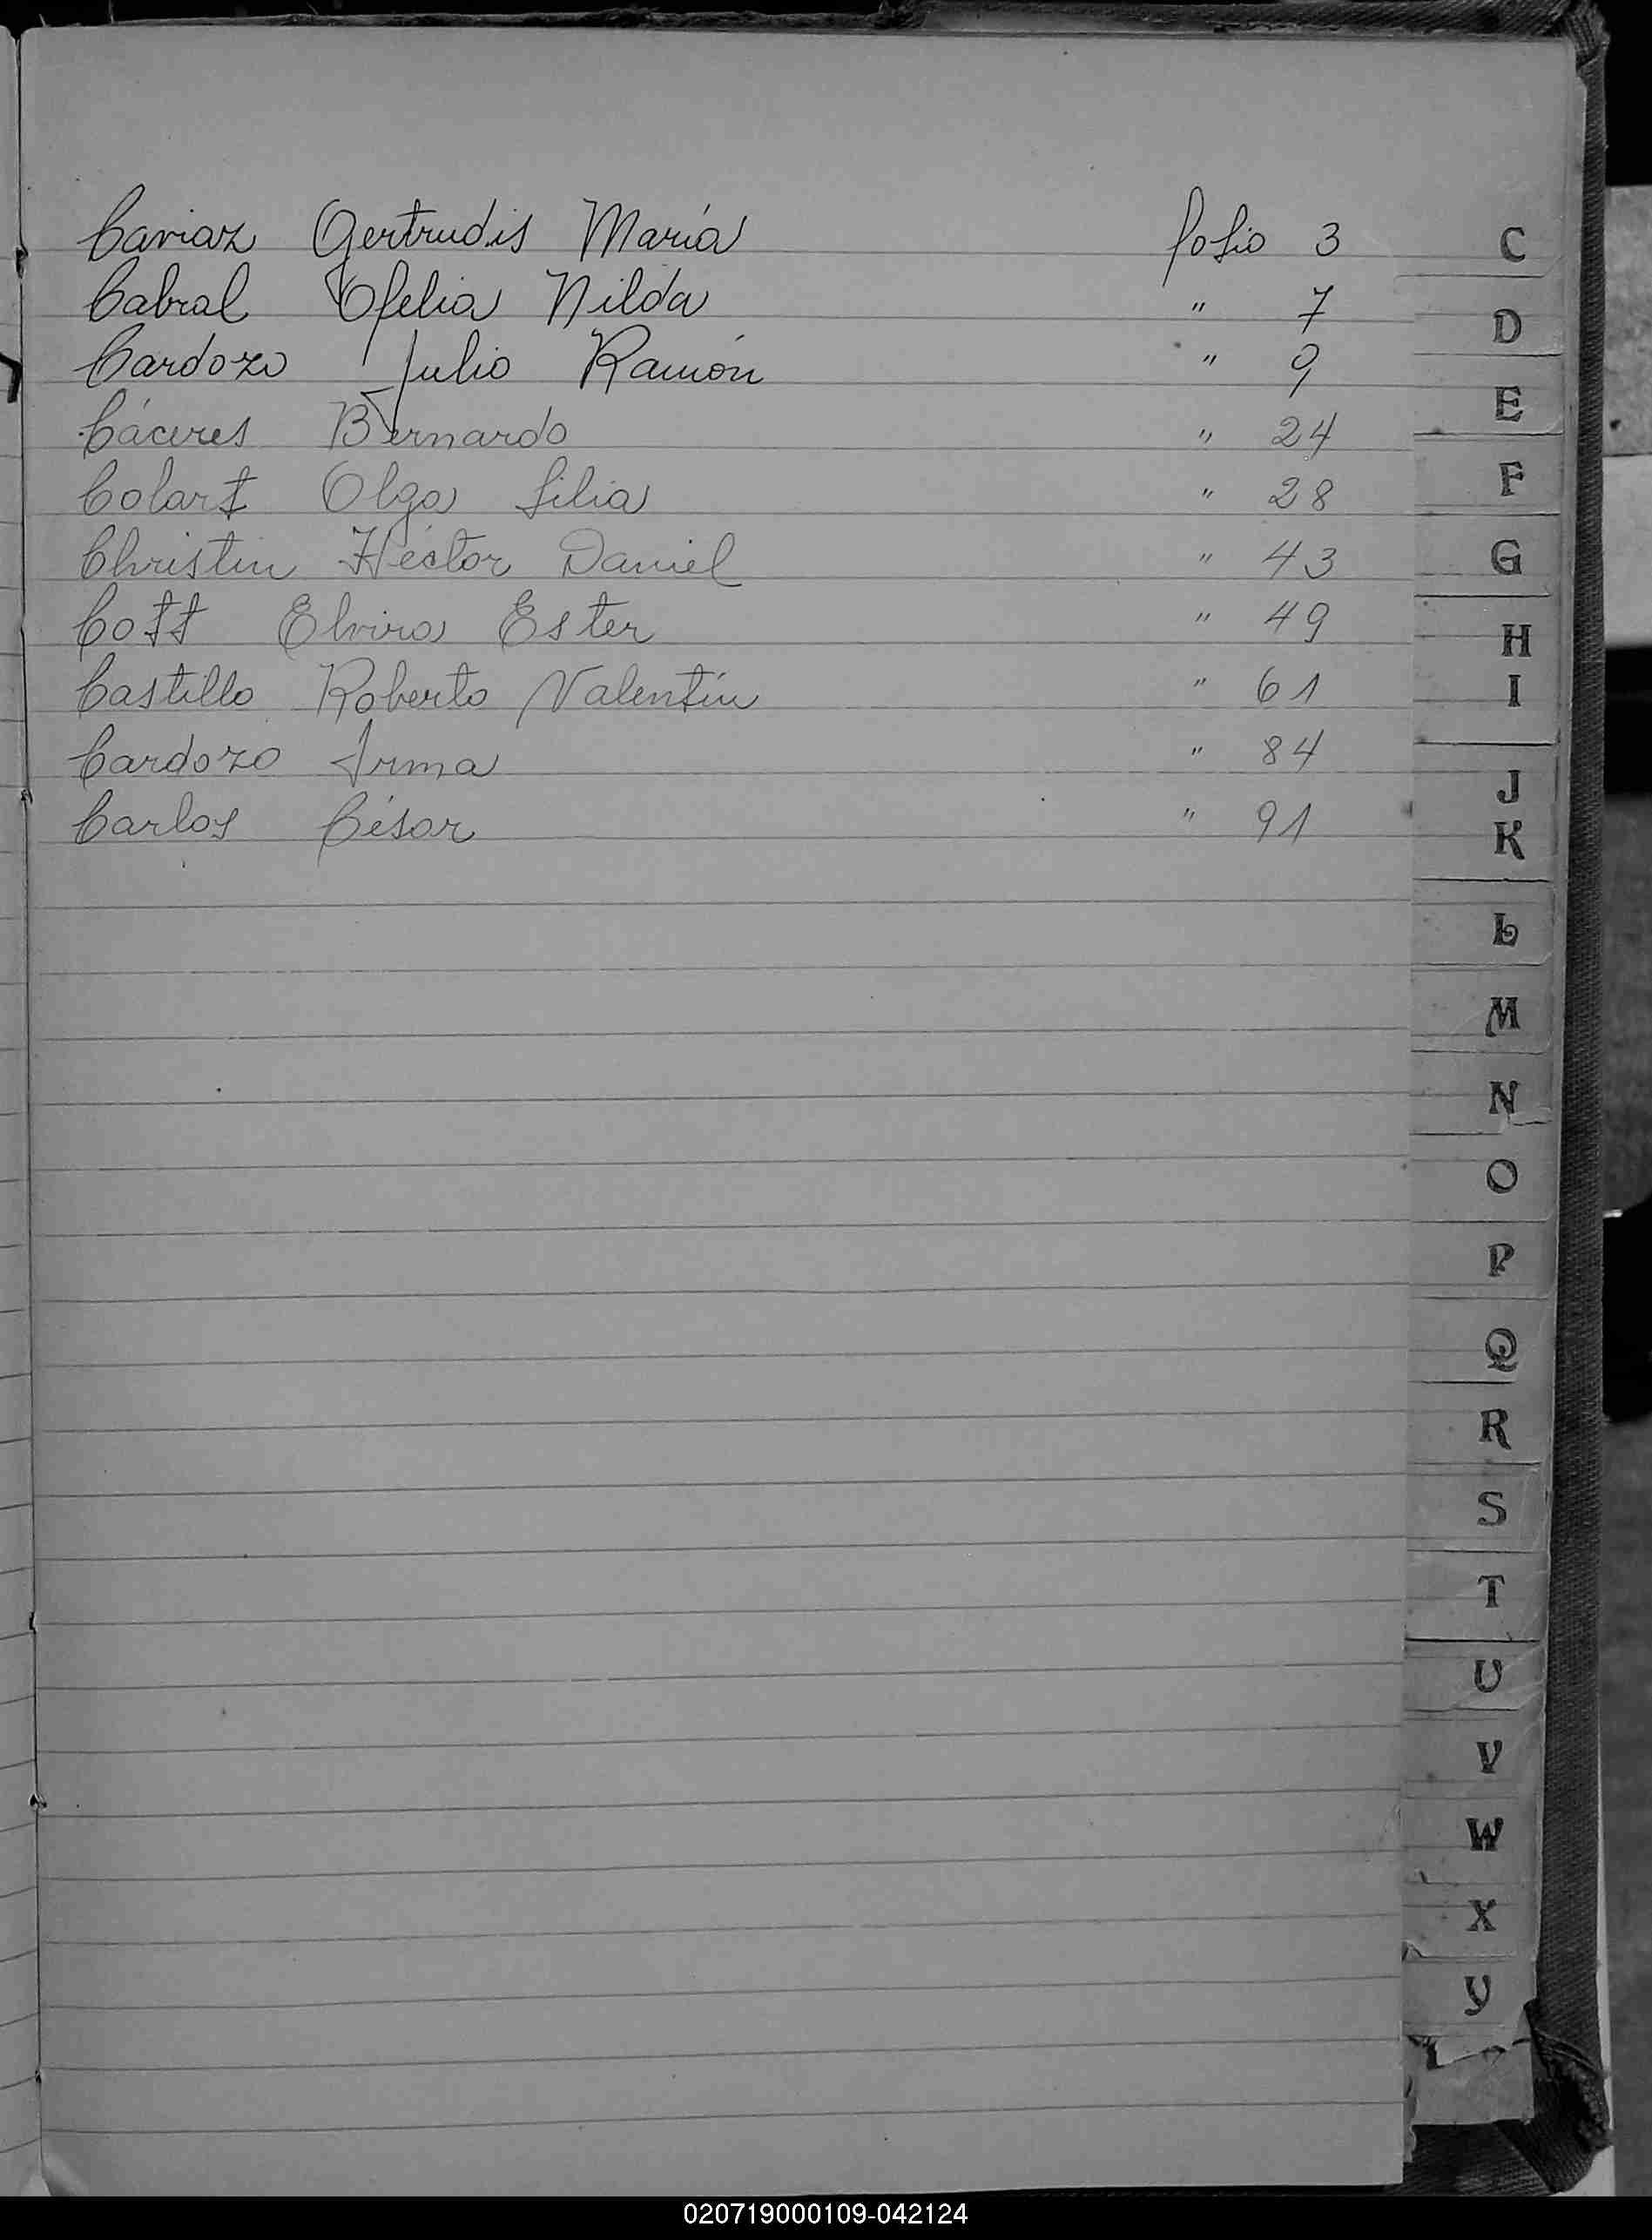 Cariaz Gertrudis María folio 3
Cabral Ofelia Nilda " 7
Cardozo Julio Ramón " 9
Cáceres Bernardo " 24
Colart Olga Lilia " 28
Christin Héctor Daniel " 43
Cott Elvira Ester " 49
Castillo Roberto Valentín " 61
Cardozo Irma " 84
Carlos César " 91
C
D
E
F
G
H
I
J
K
L
M
N
O
P
Q
R
S
T
U
V
W
X
Y
020719000109-042124